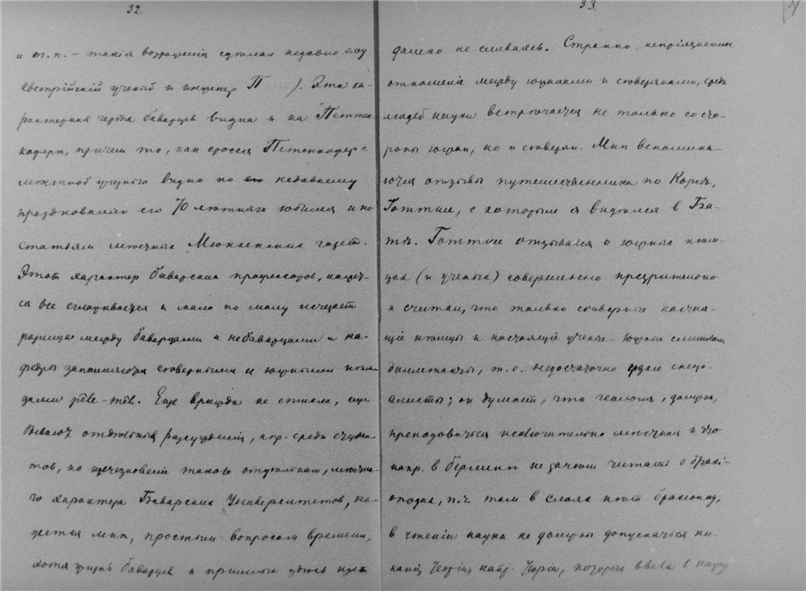 32
и т. п. – такія возраженія сдѣлалъ недавно ему
австрійскій ученый и инженеръ П ...). Эта ха-
рактерная черта баварцевъ видна и на Петтен-
коферѣ, причемъ то, какъ сросся Петтенкоферъ с
мѣстной видно по недавнему
празднованію его 70 лѣтняго юбилея и по
статьямъ мѣстныхъ Мюнхенскихъ газетъ.
Этотъ характеръ баварскихъ профессоровъ, кажет-
ся все сглаживается и мало по малу исчезаетъ
разница между баварцами и небаварцами и ка-
федры запасаются сѣверными и южными нѣм-
цами Еще вражда не стихла, еще
бываютъ отдѣльныя , нар. среди студен-
товъ, но исчезновеніе такого отдѣльнаго, мѣстна-
го характера Баварскихъ Университетовъ, ка-
жется мнѣ, простымъ вопросомъ времени,
хотя жизнь баварцевъ и пришлыхъ здѣсь идетъ
33.
далеко не сливаясь. Странно, непріязненное
отношеніе между южанами и сѣверянами, среди
людей науки встрѣчается не только со сто-
роны южан, но и сѣверян. Мнѣ вспомина-
ются отзывы путешественника по Кореѣ,
Готтше, с которымъ я видѣлся в Ба-
тѣ. Готтше отзывался о южныхъ нѣм-
цахъ (и ученыхъ) совершенно презрительно
и считалъ, что только сѣверные настоя-
щіе нѣмцы и настоящіе ученые – южные слишкомъ
дилеттанты, т. е. недостаточно узкіе спеці-
алисты; онъ думаетъ, что геологія, должна
преподаваться исключительно мѣстная и что
напр. в Берлинѣ не зачѣмъ читать о брахі-
оподахъ, п. ч. тамъ в слояхъ нѣтъ брахіоподъ,
в чтеніи науки не должны допускаться ни-
какія теоріи, напр. теорія, которая ввела в науку